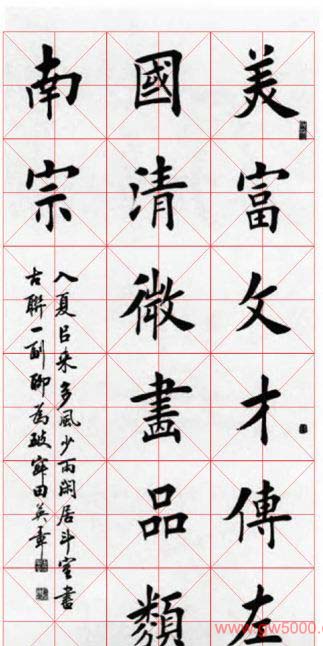 美富文才傳左
國清微畫品類
南宗
入夏以來多風少雨閑居斗室書
古聯一副聊為破寂田英章
www.gw5000.com